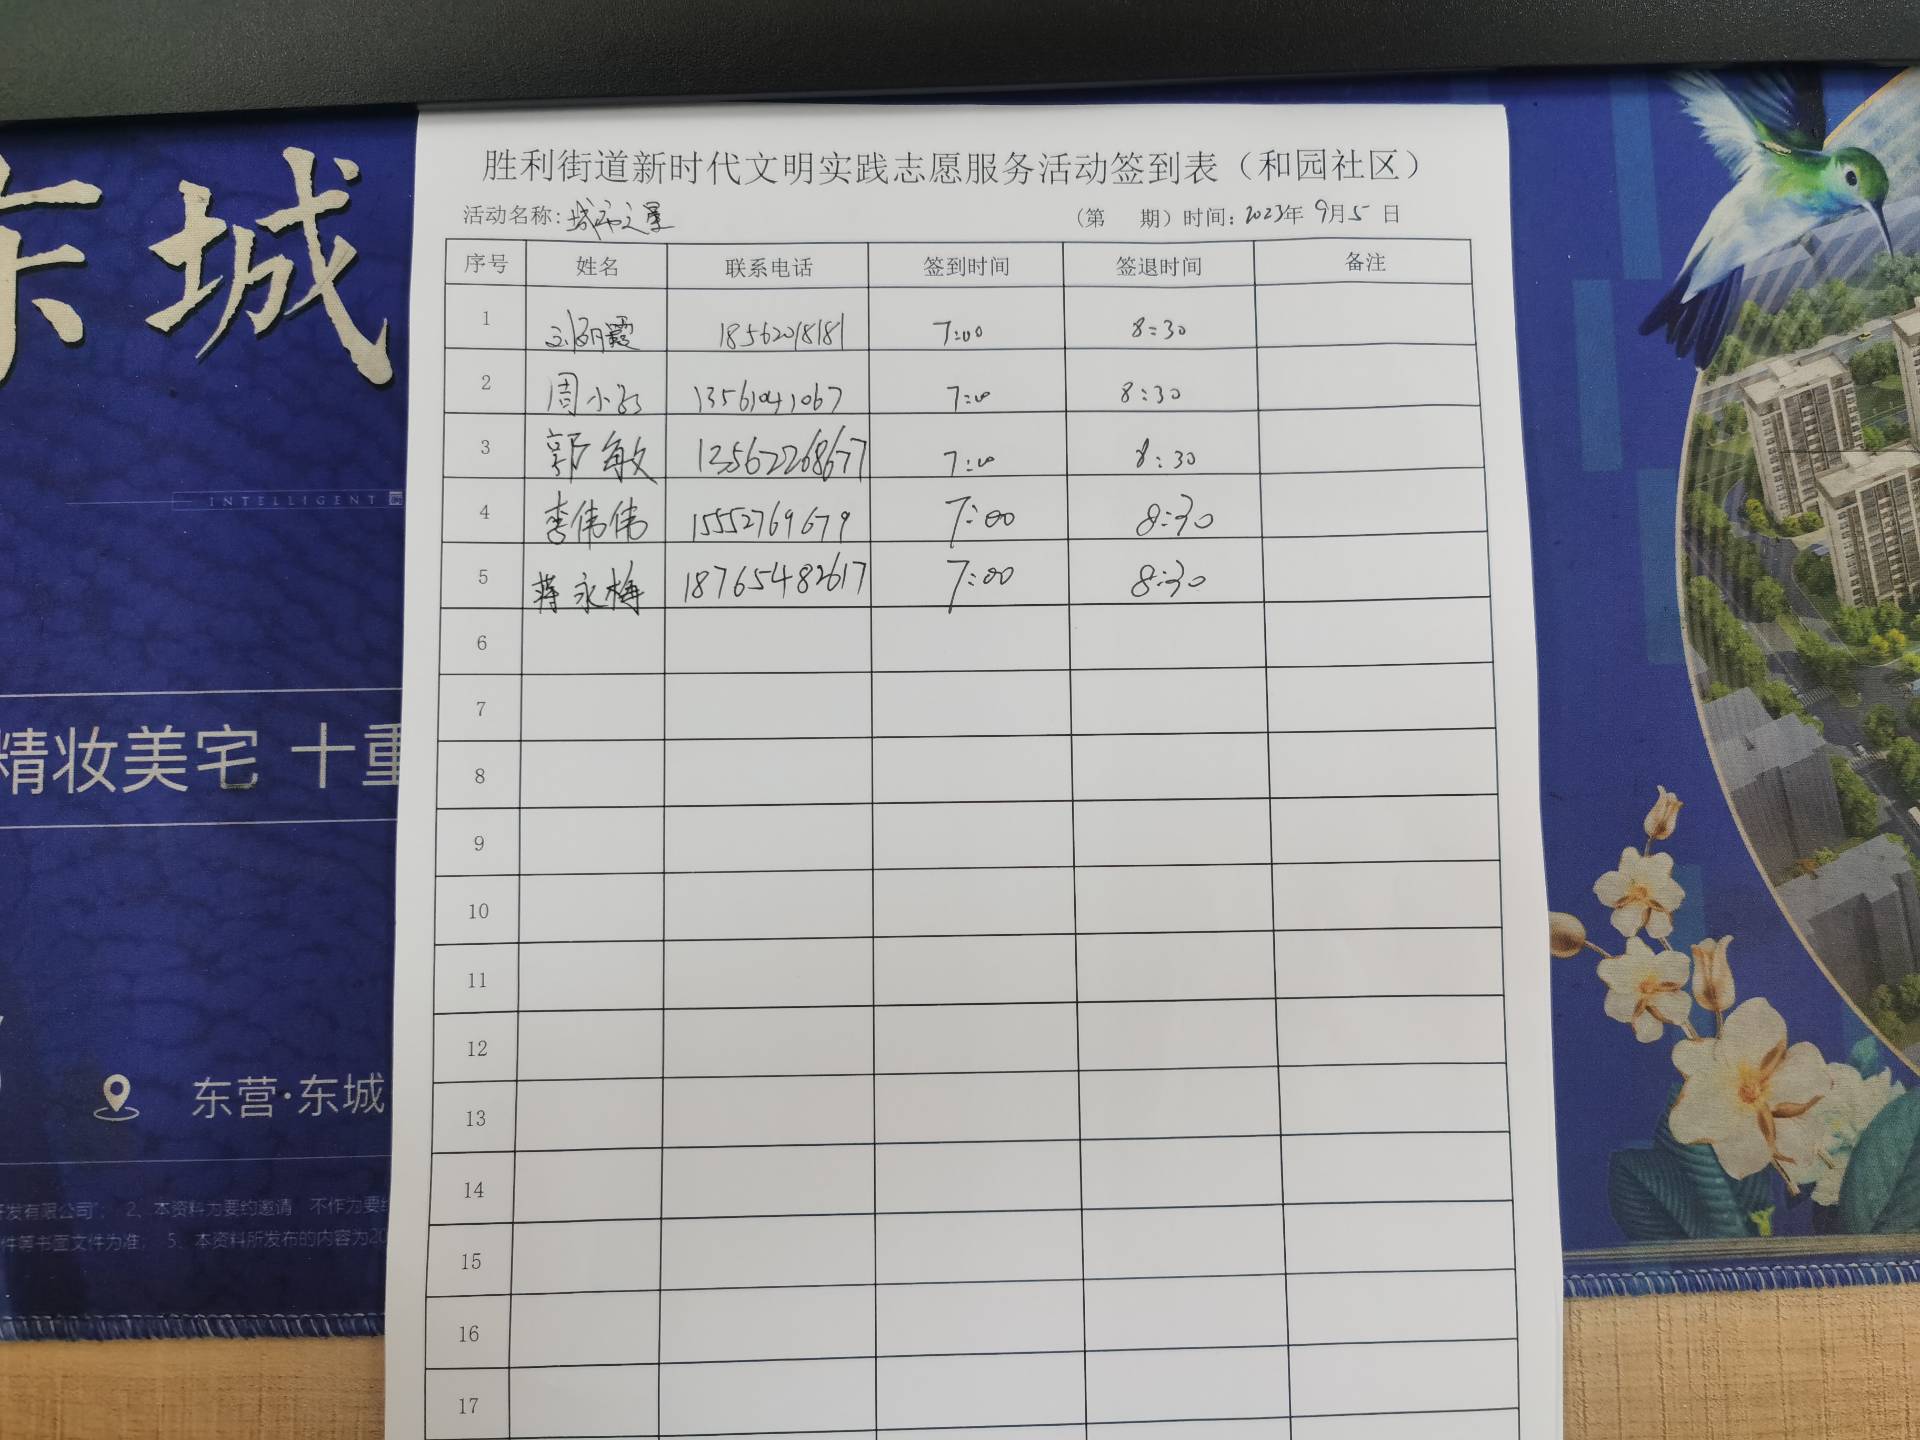 胜利街道新时代文明实践志愿服务活动签到表（和园社区）
活动名称：城市之星 （第 期）时间：2023年 9月5 日
序号 姓名 联系电话 签到时间 签退时间 备注
1 18562018181 7:00 8:30
2 周小 13561041067 7:00 8:30
3 郭敏 13562268677 7:00 8:30
4 李伟伟 15552769679 7:00 8:30
5 蒋永梅 18765482617 7:00 8:30
6
7
8
9
10
11
12
13
14
15
16
17
东城
INTELLIGENT
精妆美宅 十重
东营·东城
开发有限公司"； 2、本资料为要约邀请 不作为要约
件等书面文件为准； 5、本资料所发布的内容为20